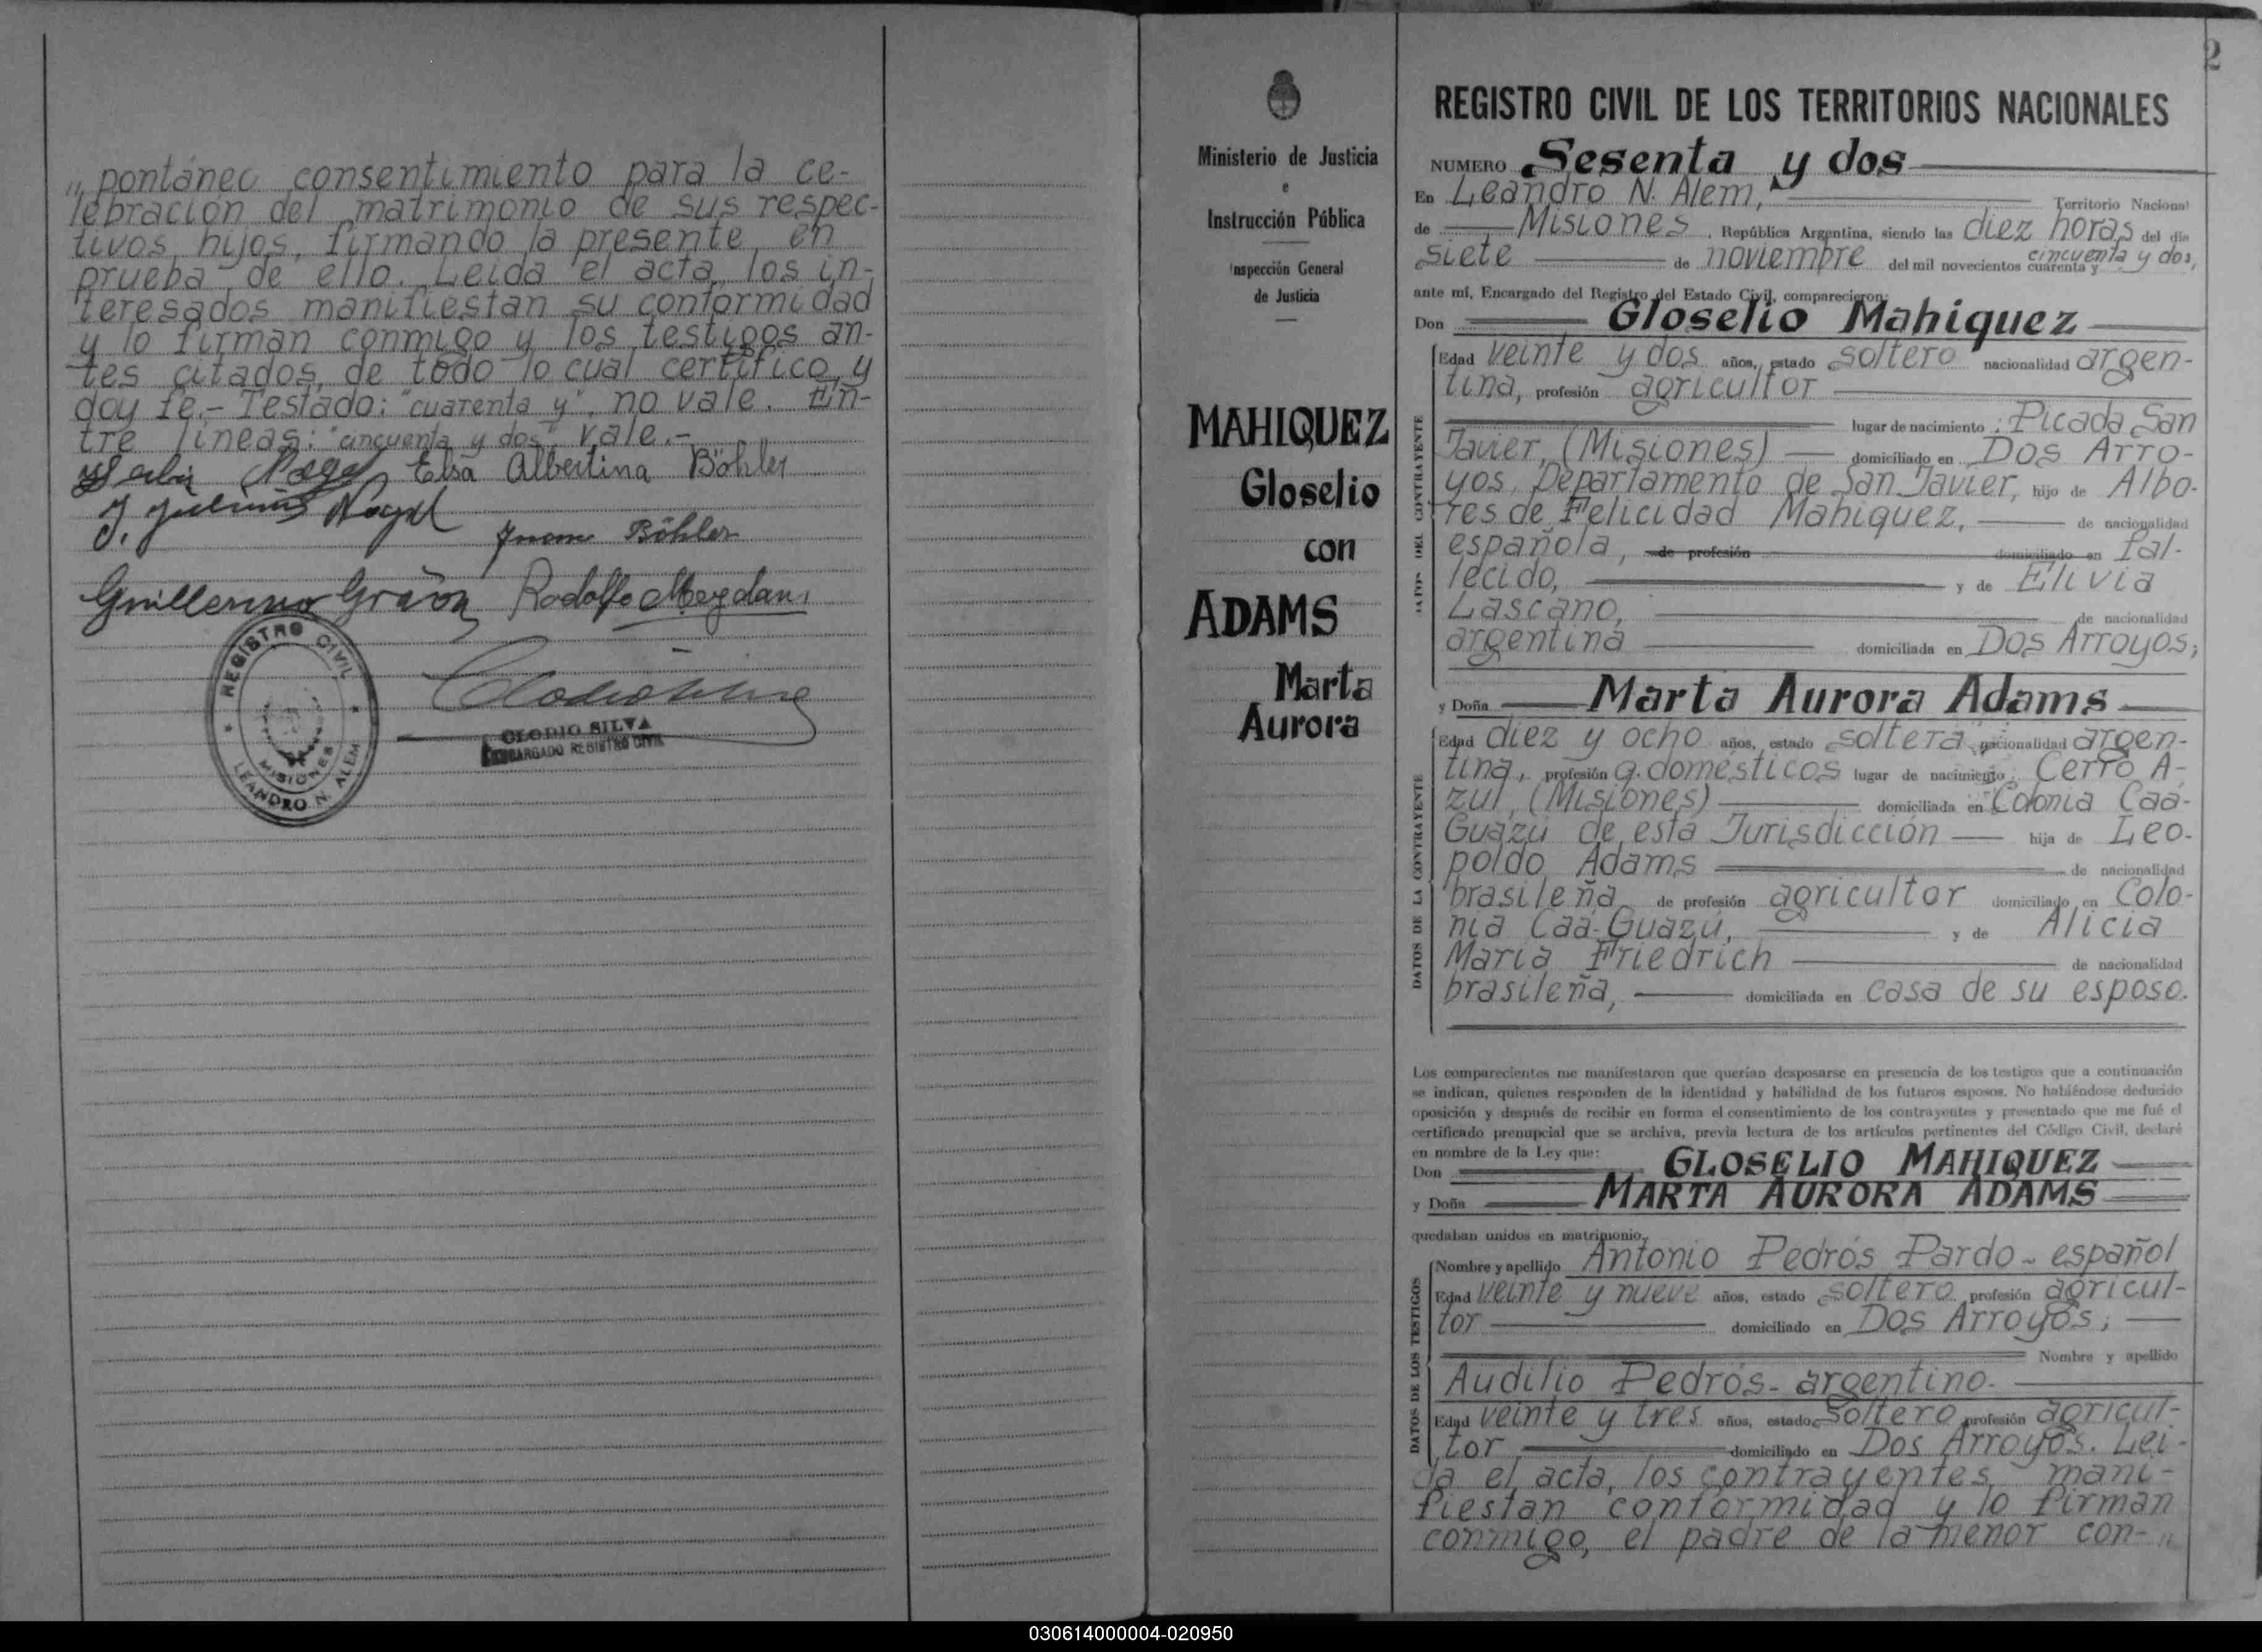 pontáneo consentimiento para la ce-
lebración del matrimonio de sus respec-
tivos hijos, firmando la presente en
prueba de ello. Leída el acta, los in-
teresados manifiestan su conformidad
y lo firman conmigo y los testigos an-
tes citados, de todo lo cual certifico y
doy fe.- Testado: "cuarenta y", no vale. En-
tre líneas: "cincuenta y dos", vale.-
Elsa Albertina Böhler
J. Julius Nagel
Böhler
Guillermo Rodolfo
REGISTRO CIVIL
MISIONES
LEANDRO N. ALEM
CLODIO SILVA
ENCARGADO REGISTRO CIVIL
Ministerio de Justicia
e
Instrucción Pública
Inspección General
de Justicia
MAHIQUEZ
Gloselio
con
ADAMS
Marta
Aurora
2
REGISTRO CIVIL DE LOS TERRITORIOS NACIONALES
NUMERO Sesenta y dos
En Leandro N. Alem, Territorio Nacional
de Misiones, República Argentina, siendo las diez horas del día
siete de noviembre del mil novecientos cuarenta y cincuenta y dos,
ante mí, Encargado del Registro del Estado Civil, comparecieron:
Don Gloselio Mahiquez
DATOS DEL CONTRAYENTE
Edad veinte y dos años, estado soltero nacionalidad argen-
tina, profesión agricultor
lugar de nacimiento: Picada San
Javier, (Misiones) domiciliado en Dos Arro-
yos, Departamento de San Javier, hijo de Albo-
res de Felicidad Mahiquez, de nacionalidad
española, de profesión domiciliado en fal-
lecido, y de Elivia
Lascano, de nacionalidad
argentina domiciliada en Dos Arroyos;
y Doña Marta Aurora Adams
DATOS DE LA CONTRAYENTE
Edad diez y ocho años, estado soltera, nacionalidad argen-
tina, profesión q. domésticos lugar de nacimiento: Cerro A-
zul, (Misiones) domiciliada en Colonia Caá-
Guazú de esta Jurisdicción hija de Leo-
poldo Adams de nacionalidad
brasileña de profesión agricultor domiciliado en Colo-
nia Caá-Guazú, y de Alicia
María Friedrich de nacionalidad
brasileña, domiciliada en casa de su esposo.
Los comparecientes me manifestaron que querían desposarse en presencia de los testigos que a continuación
se indican, quienes responden de la identidad y habilidad de los futuros esposos. No habiéndose deducido
oposición y después de recibir en forma el consentimiento de los contrayentes y presentado que me fué el
certificado prenupcial que se archiva, previa lectura de los artículos pertinentes del Código Civil, declaré
en nombre de la Ley que:
Don GLOSELIO MAHIQUEZ
y Doña MARTA AURORA ADAMS
quedaban unidos en matrimonio.
DATOS DE LOS TESTIGOS
Nombre y apellido Antonio Pedrós Pardo - español
Edad veinte y nueve años, estado soltero profesión agricul-
tor domiciliado en Dos Arroyos;
Nombre y apellido
Audilio Pedrós - argentino.
Edad veinte y tres años, estado soltero profesión agricul-
tor domiciliado en Dos Arroyos. Leí-
da el acta, los contrayentes mani-
fiestan conformidad y lo firman
conmigo, el padre de la menor con-
030614000004-020950